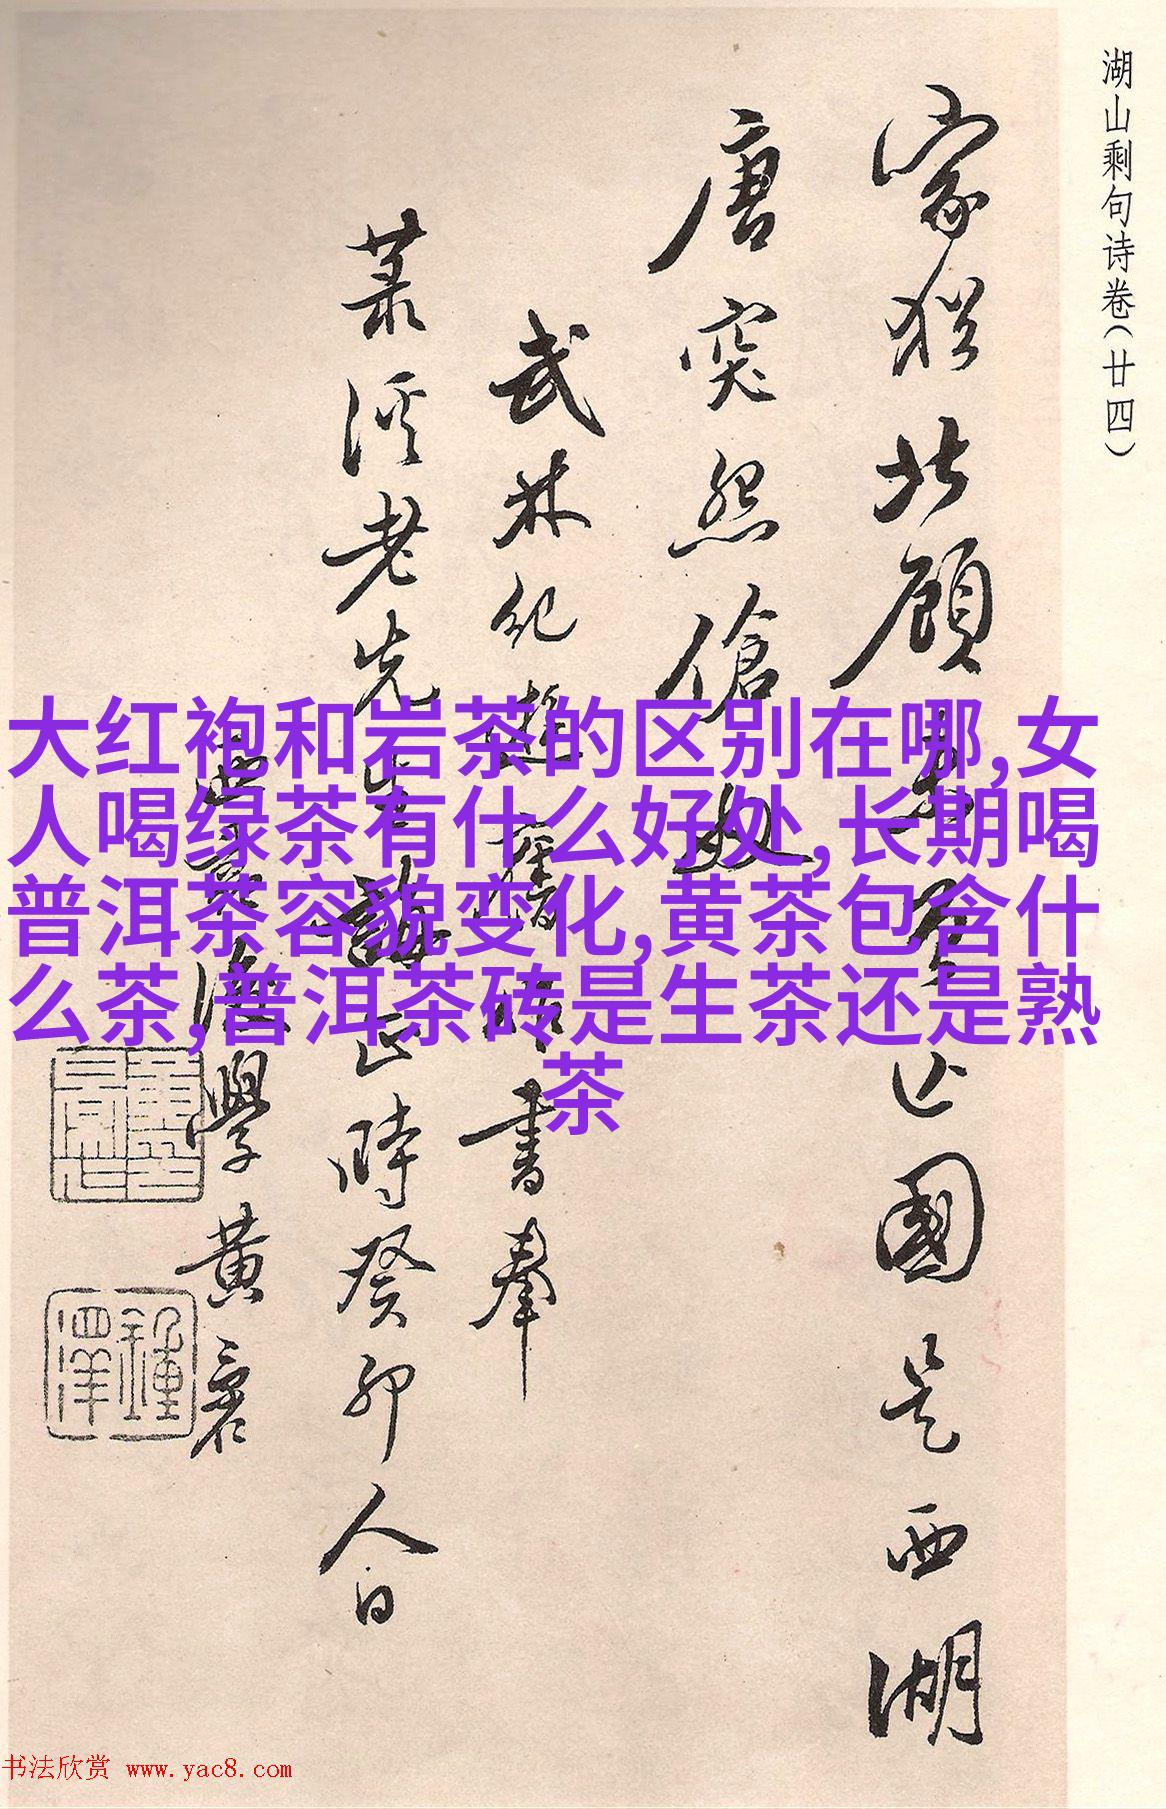 湖山剩句诗卷(廿四)
家 猶北顧 國是西湖
唐突無傖父
武林紀遊舊時書奉
老先生 正時癸卯人日
學黄
大红袍和岩茶的区别在哪,女
人喝绿茶有什么好处,长期喝
普洱茶容貌变化,黄茶包含什
么茶,普洱茶砖是生茶还是熟
茶
书法欣赏 www.yac8.com